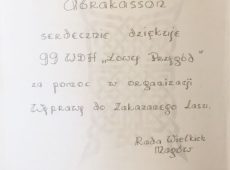 serdecznie dziękuje
99 WDH „Łowcy Przygód”
za pomoc w organizacji
Wyprawy do Zakazanego Lasu.
Rada Wielkich
Magów